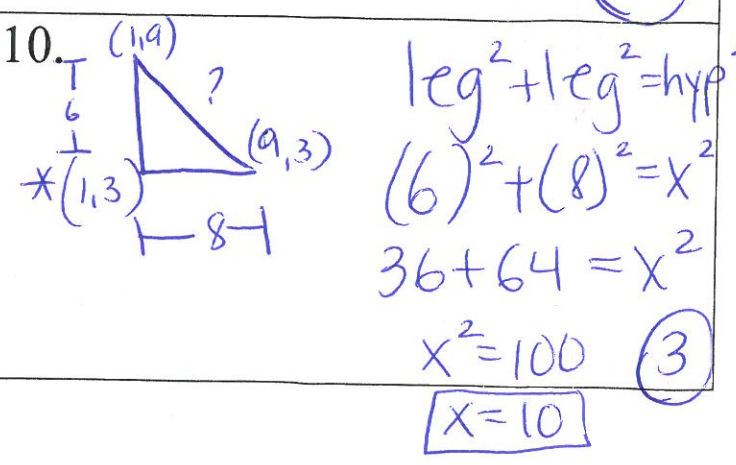 10.
(1,9)
6
?
(9,3)
*(1,3)
8
leg²+leg²=hyp²
(6)²+(8)²=x²
36+64=x²
x²=100
3
x=10